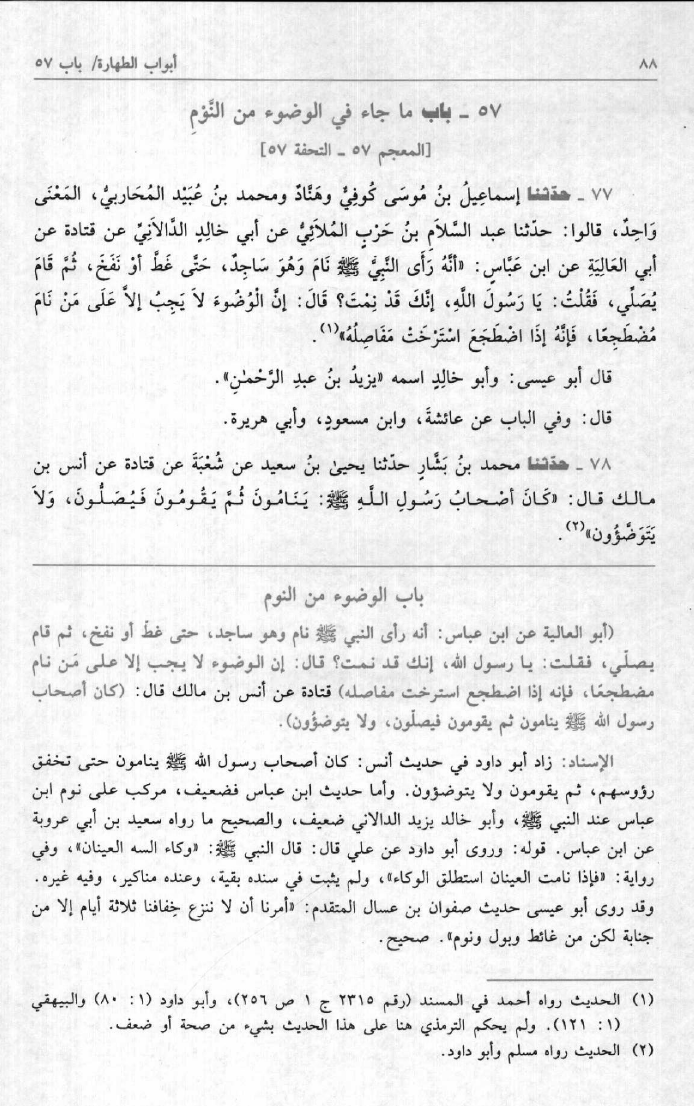 ٨٨
أبواب الطهارة/ باب ٥٧
٥٧ ـ باب ما جاء في الوضوء من النَّوْمِ
[المعجم ٥٧ ـ التحفة ٥٧]
٧٧ ـ حدّثنا إسماعِيلُ بنُ مُوسَى كُوفِيٌّ وهَنَّادٌ ومحمد بنُ عُبَيْد المُحَاربيُّ، المَعْنَى
وَاحِدٌ، قالوا: حدّثنا عبد السَّلاَمِ بنُ حَرْبٍ المُلاَئِيُّ عن أبي خالِدٍ الدَّالاَنِيِّ عن قتادة عن
أبي العَالِيَةِ عن ابن عَبَّاسٍ: «أنَّهُ رَأَى النبيَّ ﷺ نَامَ وَهُوَ سَاجِدٌ، حَتَّى غَطَّ أوْ نَفَخَ، ثُمَّ قَامَ
يُصَلِّي، فَقُلْتُ: يَا رَسُولَ اللَّهِ، إنَّكَ قَدْ نِمْتَ؟ قَالَ: إنَّ الْوُضُوءَ لاَ يَجِبُ إلاَّ عَلَى مَنْ نَامَ
مُضْطَجِعًا، فَإنَّهُ إذَا اضْطَجَعَ اسْتَرْخَتْ مَفَاصِلُهُ»(١).
قال أبو عيسى: وأبو خالِدٍ اسمه «يزيدُ بنُ عبدِ الرَّحْمٰنِ».
قال: وفي الباب عن عائشةَ، وابن مسعودٍ، وأبي هريرة.
٧٨ ـ حدّثنا محمد بنُ بَشَّارٍ حدّثنا يحيىٰ بنُ سعيد عن شُعْبَةَ عن قتادة عن أنس بن
مالك قال: «كَانَ أصْحابُ رَسُولِ اللَّهِ ﷺ: يَنَامُونَ ثُمَّ يَقُومُونَ فَيُصَلُّونَ، وَلاَ
يَتَوَضَّؤُون»(٢).
باب الوضوء من النوم
(أبو العالية عن ابن عباس: أنه رأى النبي ﷺ نام وهو ساجد، حتى غطّ أو نفخ، ثم قام
يصلّي، فقلت: يا رسول الله، إنك قد نمت؟ قال: إن الوضوء لا يجب إلا على مَن نام
مضطجعًا، فإنه إذا اضطجع استرخت مفاصله) قتادة عن أنس بن مالك قال: (كان أصحاب
رسول الله ﷺ ينامون ثم يقومون فيصلّون، ولا يتوضؤون).
الإسناد: زاد أبو داود في حديث أنس: كان أصحاب رسول الله ﷺ ينامون حتى تخفق
رؤوسهم، ثم يقومون ولا يتوضؤون. وأما حديث ابن عباس فضعيف، مركب على نوم ابن
عباس عند النبي ﷺ، وأبو خالد يزيد الدالاني ضعيف، والصحيح ما رواه سعيد بن أبي عروبة
عن ابن عباس. قوله: وروى أبو داود عن علي قال: قال النبي ﷺ: «وكاء السه العينان»، وفي
رواية: «فإذا نامت العينان استطلق الوكاء»، ولم يثبت في سنده بقية، وعنده مناكير، وفيه غيره.
وقد روى أبو عيسى حديث صفوان بن عسال المتقدم: «أمرنا أن لا ننزع خِفافنا ثلاثة أيام إلا من
جنابة لكن من غائط وبول ونوم». صحيح.
(١) الحديث رواه أحمد في المسند (رقم ٢٣١٥ ج ١ ص ٢٥٦)، وأبو داود (١: ٨٠) والبيهقي
(١: ١٢١). ولم يحكم الترمذي هنا على هذا الحديث بشيء من صحة أو ضعف.
(٢) الحديث رواه مسلم وأبو داود.